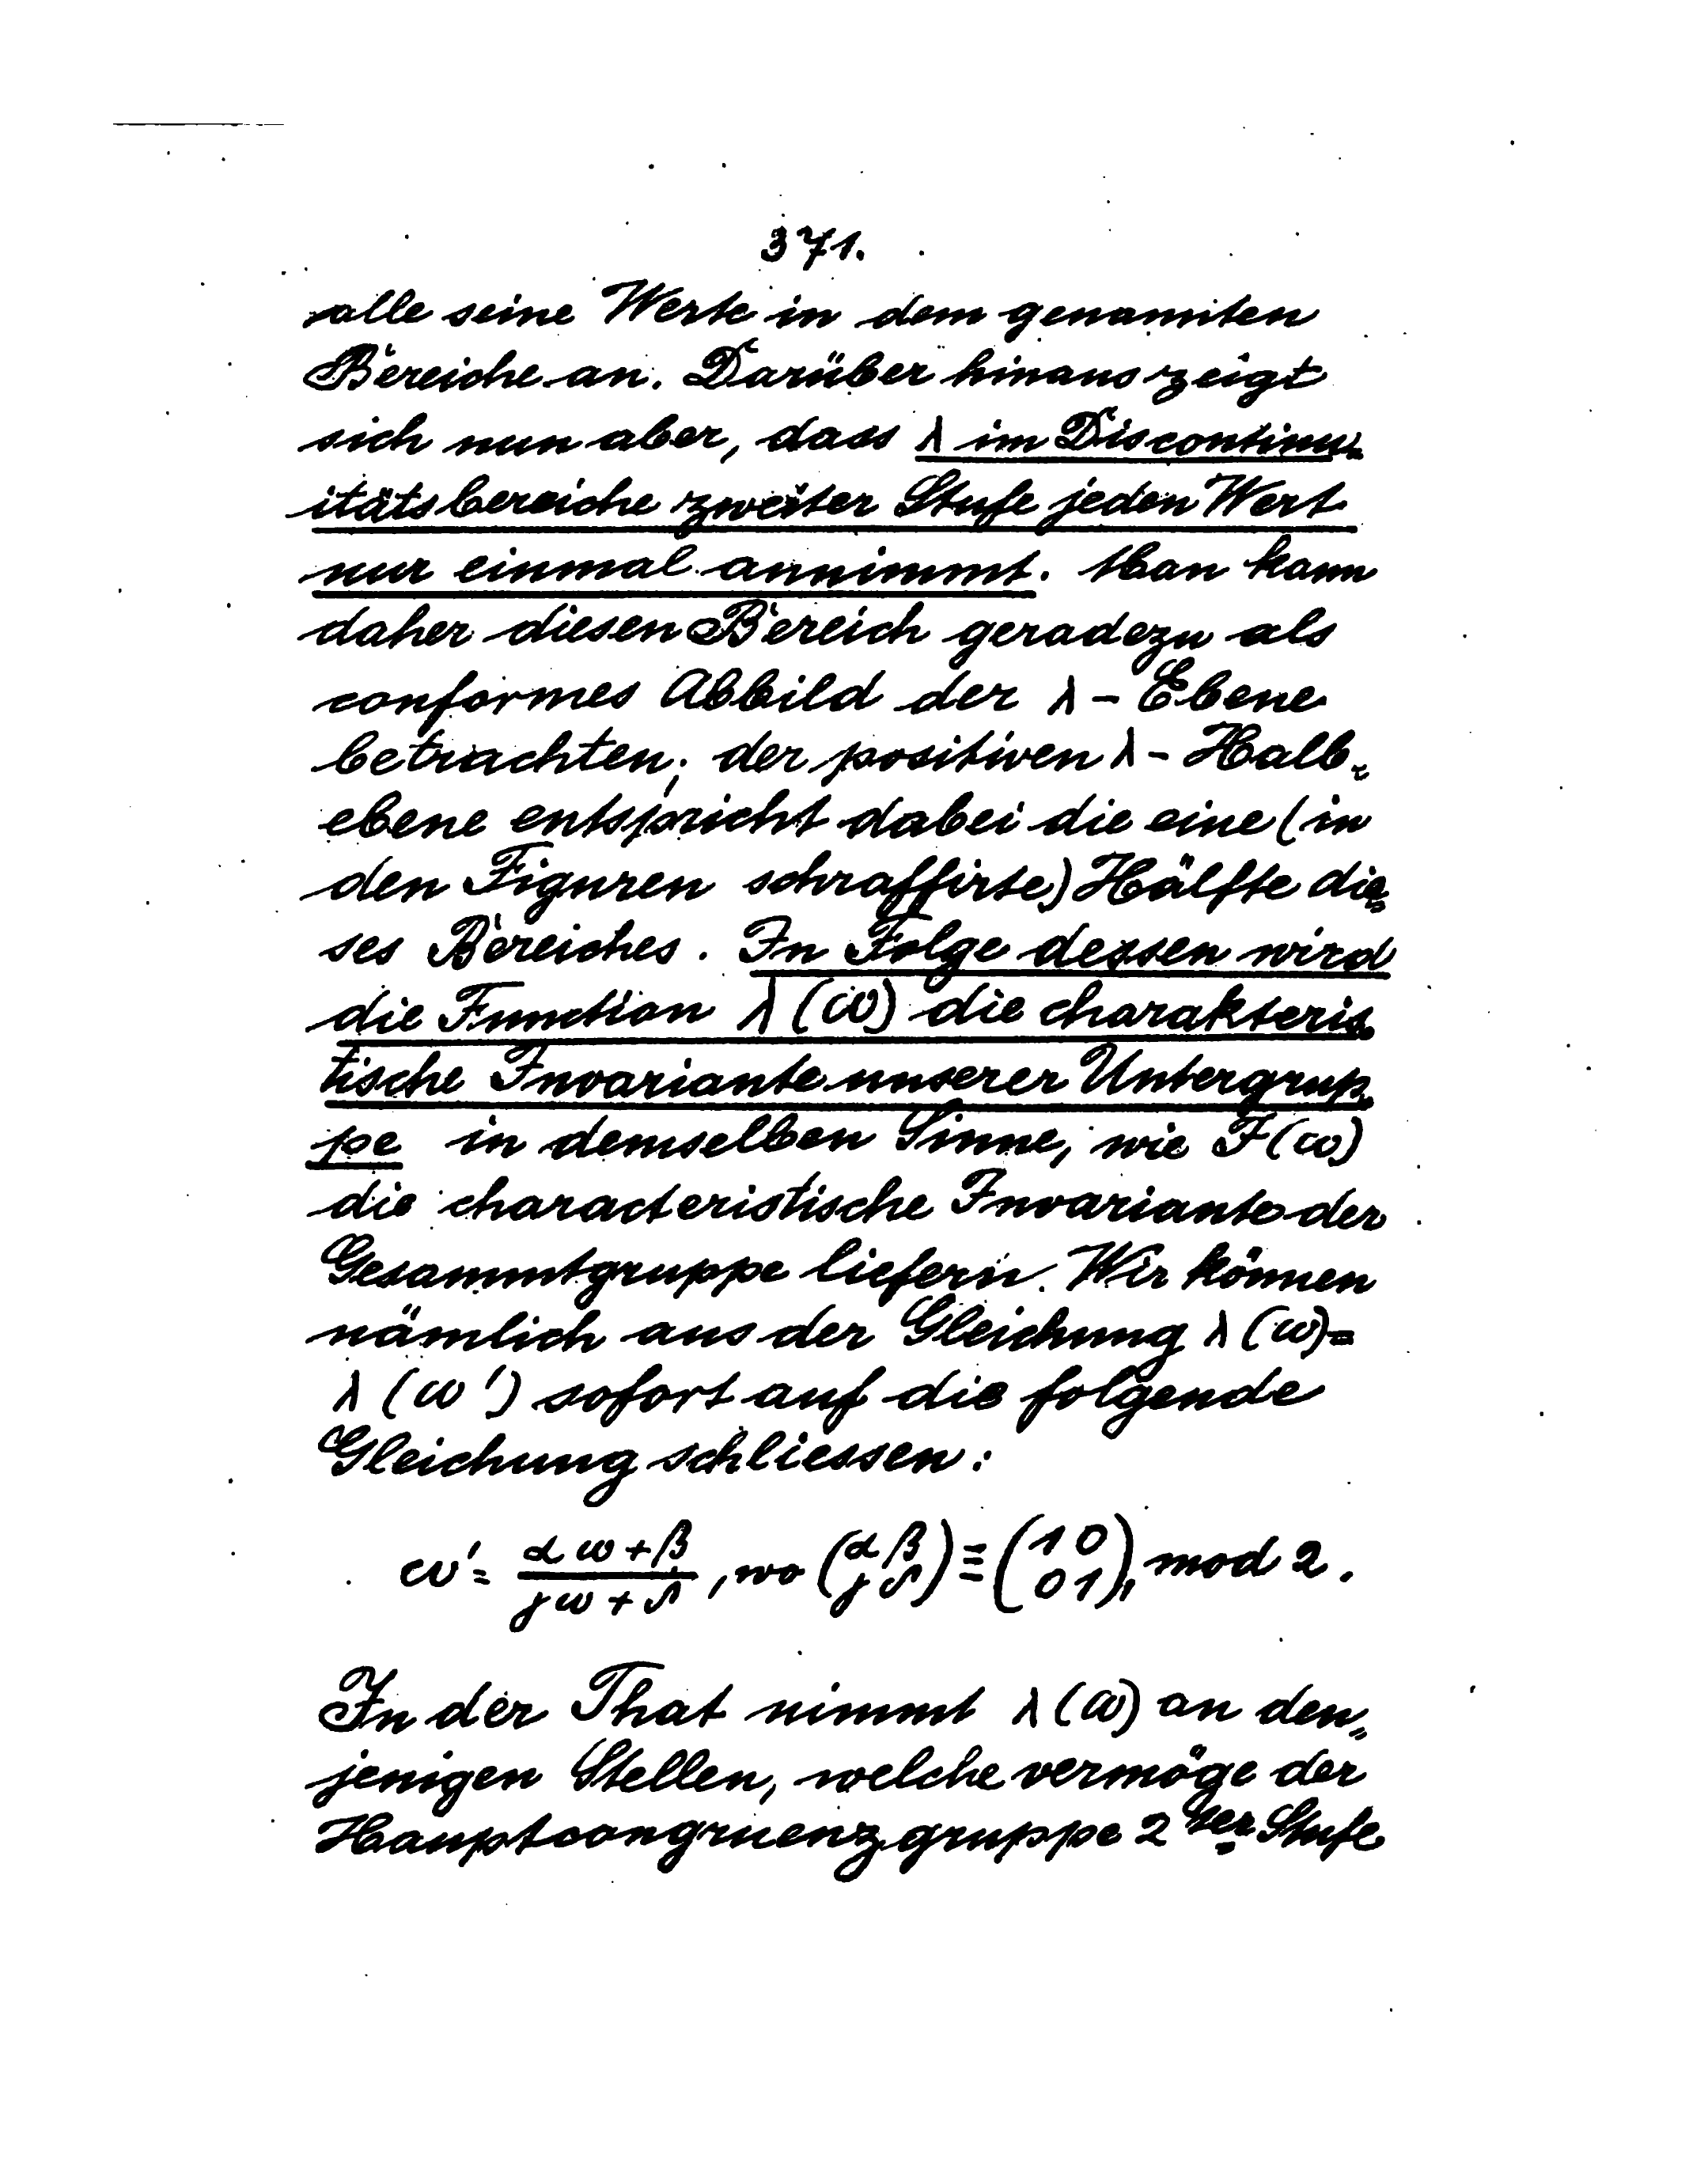 371.
alle seine Werte in dem genannten
Bereiche an. Darüber hinaus zeigt
sich nun aber, dass λ im Discontinu-
itätsbereiche zweiter Stufe jeden Wert
nur einmal annimmt. Man kann
daher diesen Bereich geradezu als
conformes Abbild der λ-Ebene
betrachten; der positiven λ-Halb-
ebene entspricht dabei die eine (in
den Figuren schraffirte) Hälfte die-
ses Bereiches. In Folge dessen wird
die Function λ(ω) die charakteris-
tische Invariante unserer Untergrup-
pe in demselben Sinne, wie F(ω)
die characteristische Invariante der
Gesammtgruppe liefern. Wir können
nämlich aus der Gleichung λ(ω)=
λ(ω') sofort auf die folgende
Gleichung schliessen:
ω' = (αω+β)/(γω+δ), wo (α β / γ δ) ≡ (1 0 / 0 1), mod 2.
In der That nimmt λ(ω) an den-
jenigen Stellen, welche vermöge der
Hauptcongruenzgruppe 2ter Stufe